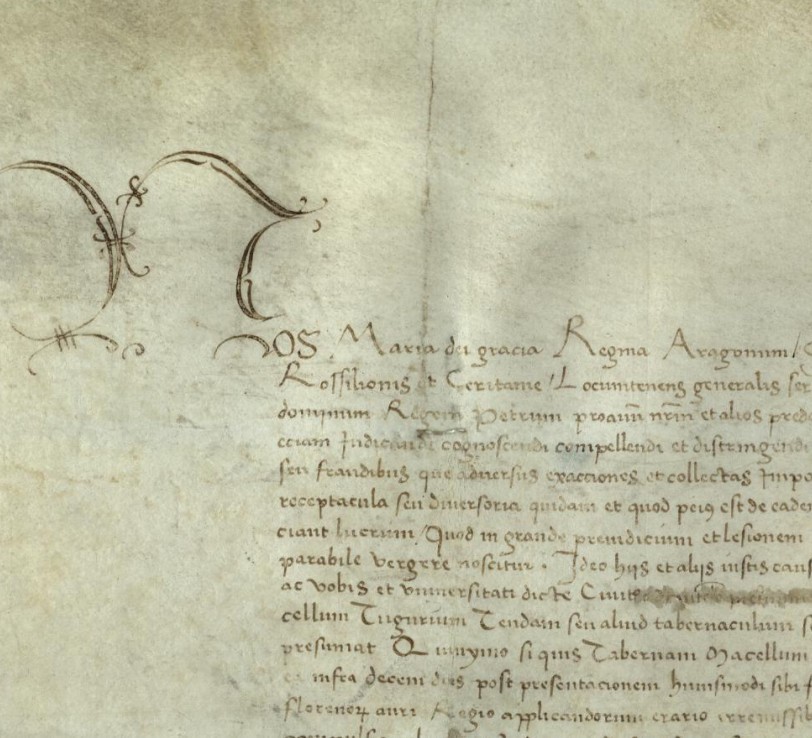 NOS Maria dei gracia Regina Aragonum /
Rossilionis et Ceritanie / Locumtenens generalis
dominum Regem Petrum proauū nr̄m et alios
eciam Iudicandi cognoscendi compellendi et distringendi
seu fraudibus que aduersus exacciones et collectas
receptacula seu diuersoria quidam et quod peius est de
ciant lucrum / Quod in grande preiudicium et lesionem
parabile vergere noscitur . Ideo hijs et alijs iustis
ac vobis et vniuersitati dicte
cellum Tugurium Tendam seu aliud tabernaculum
presumat Quinymo si quis Tabernam Macellum
infra decem dies post presentacionem huiusmodi sibi
florenorꝝ auri Regio applicandorum erario